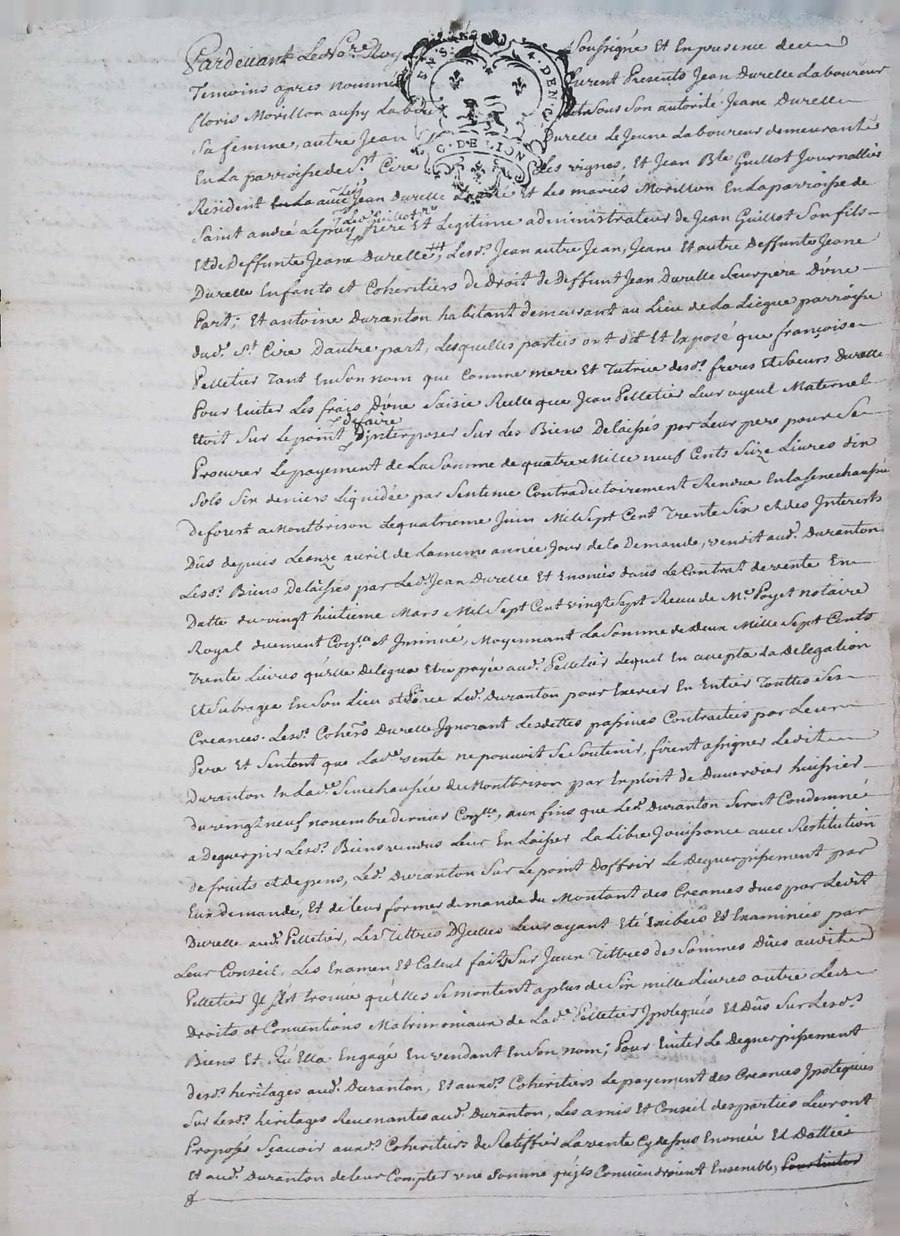 Pardevant Le No.re Roy Soussigné Et En presence des
Temoins apres nommé furent Presents Jean Durelle Laboureur
floris Morillon aussy Labou Et sous Son autorité Jeane Durelle
Sa femme, autre Jean Durelle Le Jeune Laboureur demeurants
En La parroisse de S.t Cire Les vignes, Et Jean B.te Guillot Journallier
Resident Jean Durelle et Les mariés Morillon En La parroisse de
Saint andré Le puy led. Guillot pere Et Legitime administrateur de Jean Guillot Son fils
Et de Deffunte Jeane Durelle, Lesd. Jean autre Jean, Jeane Et autre Deffunte Jeane
Durelle Enfants et Coheritiers de Droit de Deffunt Jean Durelle Leur pere D'une
Part; Et antoine Duranton habitant demeurant au Lieu de La Liègue parroisse
dud. S.t Cire D'autre part, Lesquelles parties ont dit Et Exposé que françoise
Pelletier Tant En Son nom que Comme mere Et Tutrice desd. freres Et soeurs Durelle
Pour Eviter Les frais D'une Saisie Réelle que Jean Pelletier Leur ayeul Maternel
Etoit Sur Le point de faire interposer Sur des Biens Delaissés par Leur pere pour Se
Procurer Le payement de La Somme de quatre Mille neuf Cents Seize Livres dix
Sols Six deniers Liquidée par Sentence Contradictoirement Rendue En La senechaussée
de forest a Montbrison Le quatrieme Juin Mil Sept Cent Trente Six et des Interests
Dûs depuis Le onze avril de La meme année Jour de la Demande, vendit aud. Duranton
Lesd. Biens Delaissés par Led. Jean Durelle Et Enoncés dans Le Contrat de vente En
Datte du vingt huitieme Mars Mil Sept Cent vingt Sept Recu de M.e Poyet notaire
Royal duement Con.llé et Insinué, Moyennant La Somme de Deux Mille Sept Cents
Trente Livres qu'elle Delegua Etre payée aud. Pelletier Lequel En accepta La Delegation
Et Subrogea En Son Lieu et place Led. Duranton pour Exercer En Entier Touttes Ses
Creances. Lesd. Coher.s Durelle Ignorant Les dettes passives Contractées par Leur
Pere Et Sentant que Lad. vente ne pouvoit Se Soutenir, firent assigner Ledit
Duranton En Lad. Senechaussée de Montbrison par Exploit de Duverdier huissier
du vingt neuf novembre dernier Con.llé, aux fins que Led. Duranton Seroit Condamné
a Deguerpir Lesd. Biens vendus Leur En Laisser La Libre Jouissance avec Restitution
de fruits et depens, Led. Duranton Sur Le point D'offrir Le Deguerpissement par
Eux demandé, Et de Leur former demande du Montant des Creances dues par Ledit
Durelle aud. Pelletier, Les Tittres D'Icelles Leur ayant Eté Exibés Et Examinés par
Leur Conseil, Les Examen Et Calcul faits Sur Iceux Tittres des Sommes Dûes audit
Pelletier Il S'est trouvé qu'elles Se montent a plus de Six mille Livres autre Les
Droits et Conventions Matrimoniaux de Lad. Pelletier Ipotequés Et Dûs Sur Lesd.
Biens Et qu'Ella Engagé En vendant En Son nom; Pour Eviter Le Deguerpissement
desd. héritages aud. Duranton, Et auxd. Coheritiers Le payement des Creances Ipotequées
Sur Lesd. héritages Revenants aud. Duranton, Les amis Et Conseil des parties Leur ont
Proposés Sçavoir auxd. Coheritiers de Ratiffier La vente Cy dessus Enoncée Et Dattée
Et aud. Duranton de Leur Compter une Somme qu'ils Conviendroient Ensemble,
G. DE LION